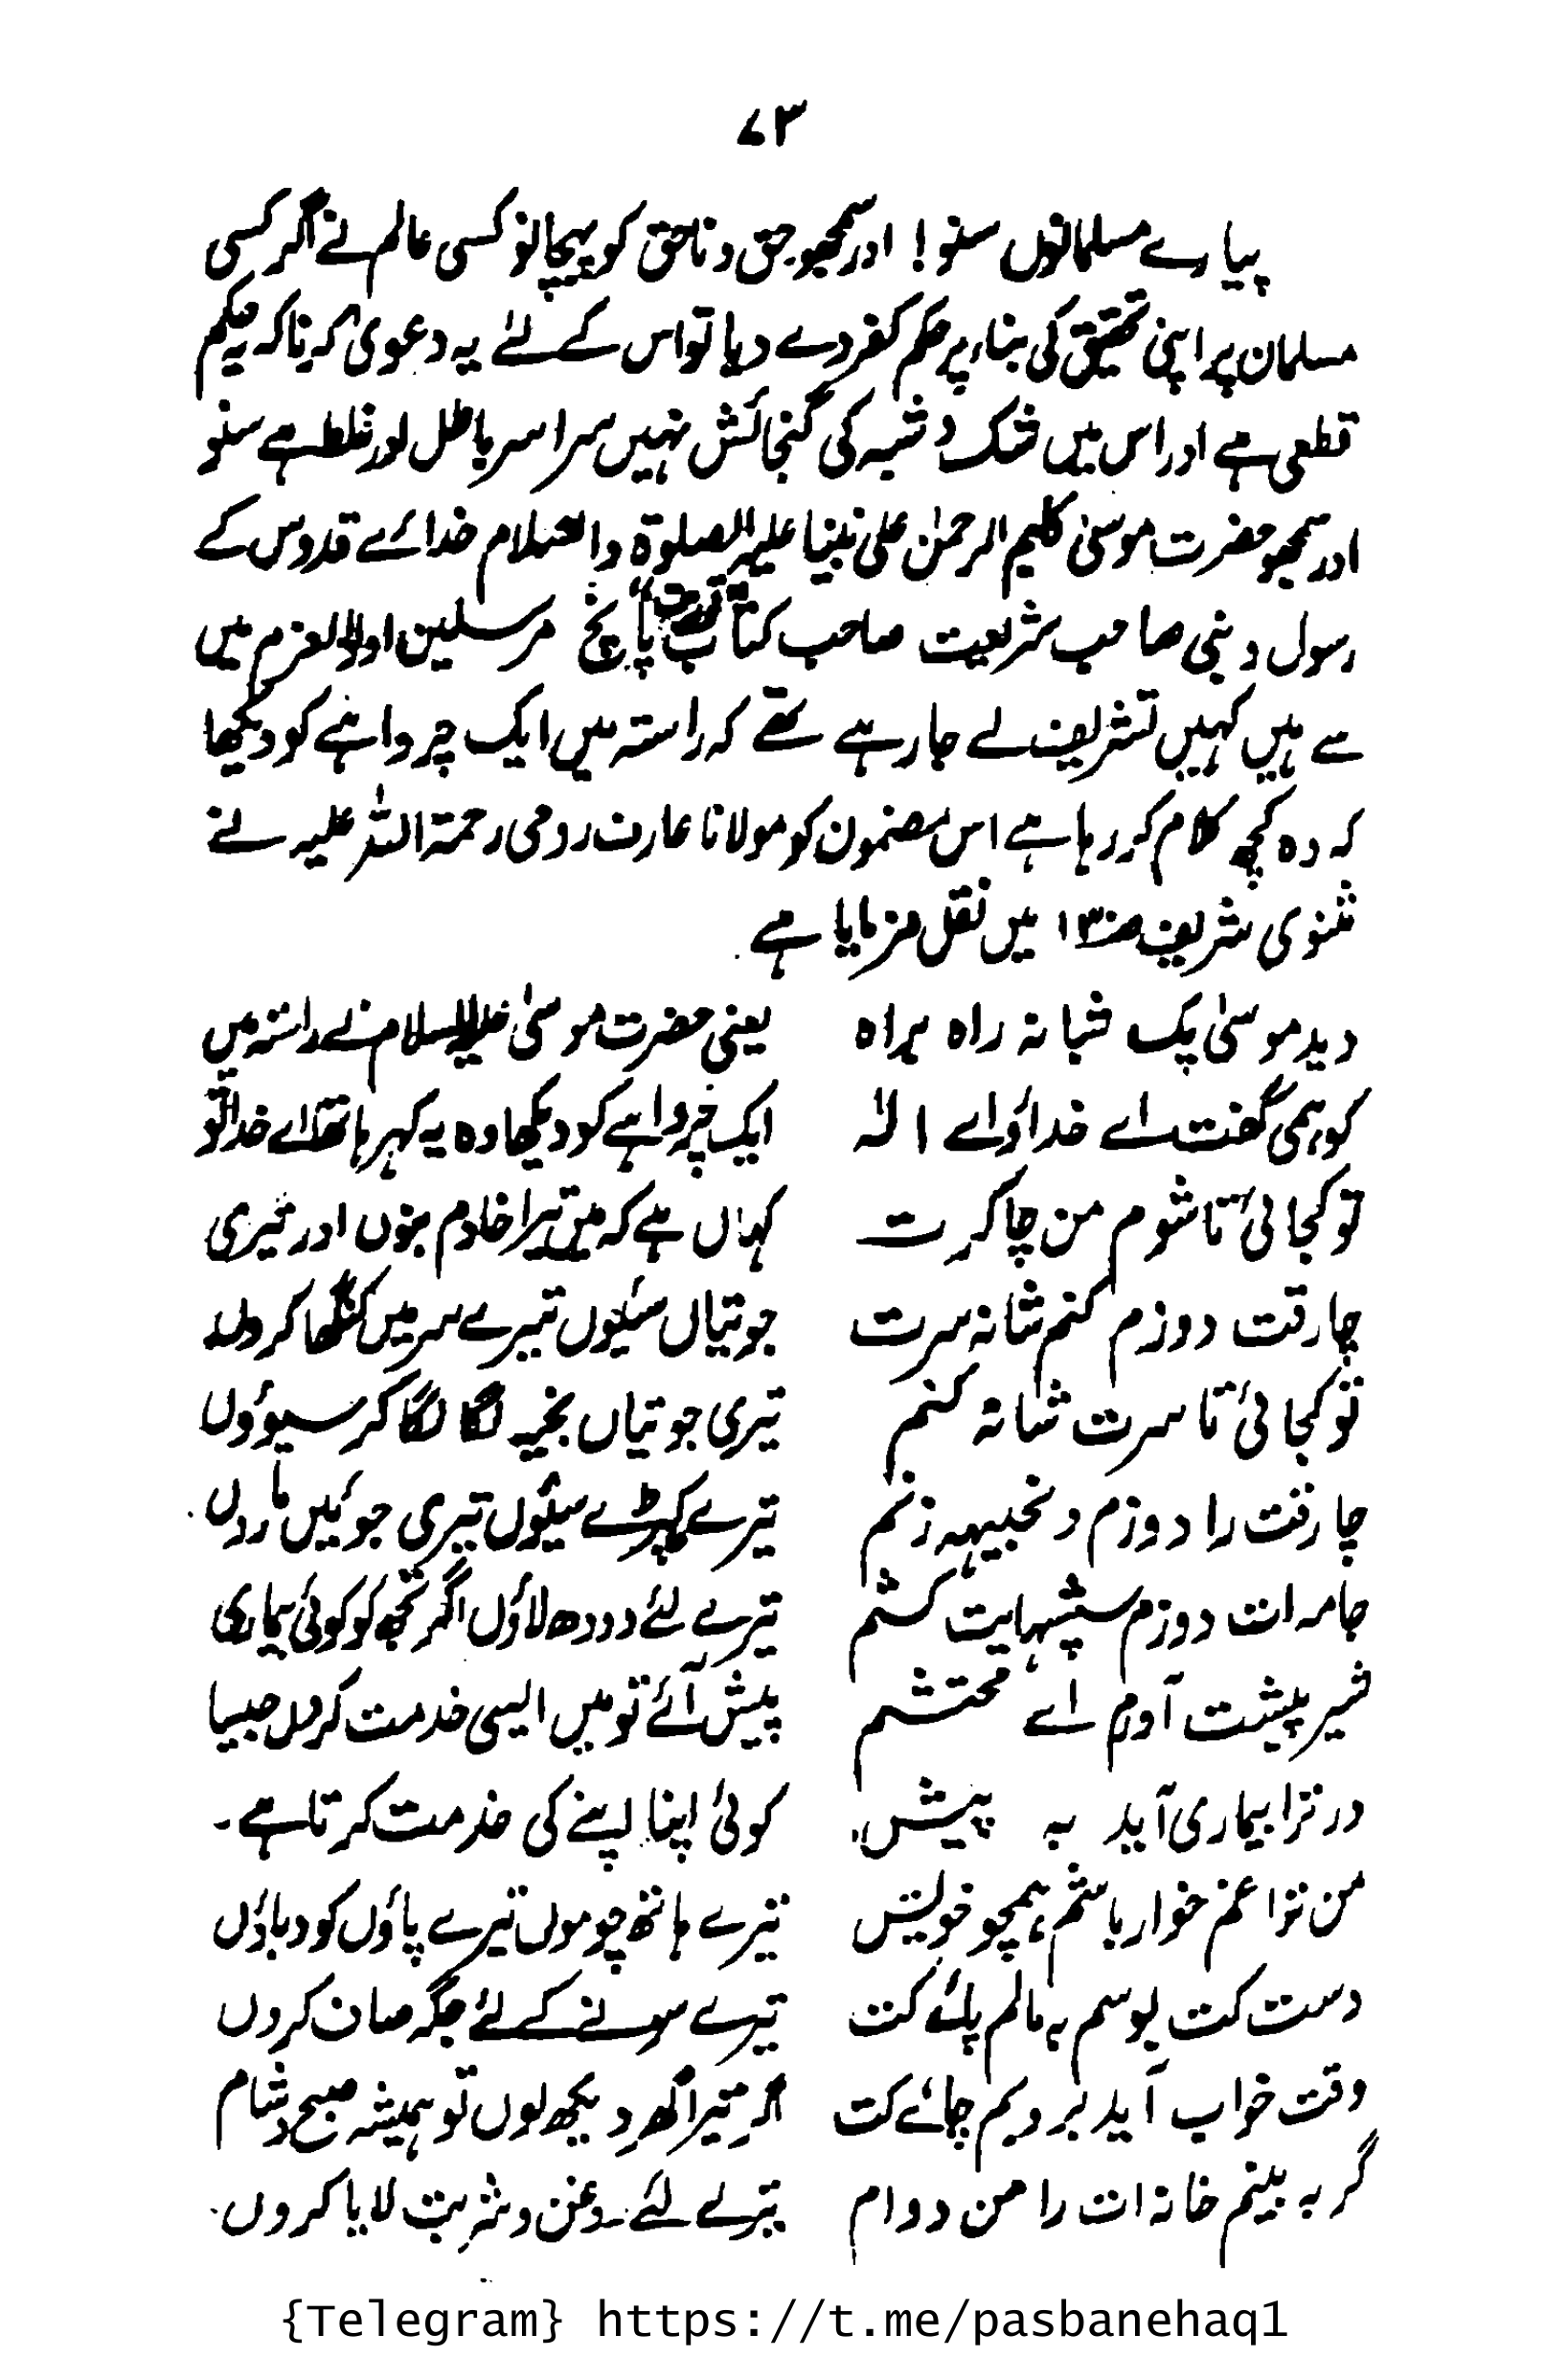 ۷۳
پیارے مسلمانوں سنو! اور سمجھو حق و ناحق کو پہچانو کسی عالم نے اگر کسی
مسلمان پر اپنی تحقیق کی بناء پر حکم کفر دے دیا تو اس کے لئے یہ دعویٰ کرنا کہ یہ حکم
قطعی ہے اور اس میں شک و شبہ کی گنجائش نہیں سراسر باطل اور غلط ہے سنو
اور سمجھو حضرت موسیٰ کلیم الرحمٰن علی نبینا علیہ الصلوۃ والسلام خدائے قدوس کے
رسول و نبی صاحب شریعت صاحب کتاب توریت پانچ مرسلین اولوالعزم میں
سے ہیں کہیں تشریف لے جا رہے تھے کہ راستہ میں ایک چرواہے کو دیکھا
کہ وہ کچھ کلام کر رہا ہے اس مضمون کو مولانا عارف رومی رحمۃ اللہ علیہ نے
مثنوی شریف میں نقل فرمایا ہے۔
دید موسیٰ یک شبانہ راہ براہ
کو ہمی گفت اے خدا و اے الٰہ
تو کجائی تا شوم من چاکرت
چارقت دوزم کنم شانہ سرت
تو کجائی تا سرت شانہ کنم
چارقت را دوزم و نجیہہ زنم
جامہ ات دوزم سپشہایت کشم
شیر پیشت آورم اے محتشم
ور ترا بیماری آید بہ پیش
من ترا غم خوار باشم ہمچو خویش
دست کت بوسم بہ مالم پائے کت
وقت خواب آید بروبم جائے کت
گر بہ بینم خانہ ات را من دوام
یعنی حضرت موسیٰ علیہ السلام نے راستہ میں
ایک چرواہے کو دیکھا وہ یہ کہہ رہا تھا اے خدا تو
کہاں ہے کہ میں تیرا خادم بنوں اور تیری
جوتیاں سیئوں تیرے سر میں کنگھا کروں
تیری جوتیاں بخیہ لگا لگا کر سیوؤں
تیرے کپڑے سیئوں تیری جوئیں ماروں۔
تیرے لئے دودھ لاؤں اگر تجھ کو کوئی بیماری
پیش آئے تو میں ایسی خدمت کروں جیسا
کوئی اپنا اپنے کی خدمت کرتا ہے۔
تیرے ہاتھ چوموں تیرے پاؤں کو دباؤں
تیرے سونے کے لئے جگہ صاف کروں
اگر تیرا گھر دیکھ لوں تو ہمیشہ صبح و شام
تیرے لئے روغن و شربت لایا کروں۔
{Telegram} https://t.me/pasbanehaq1